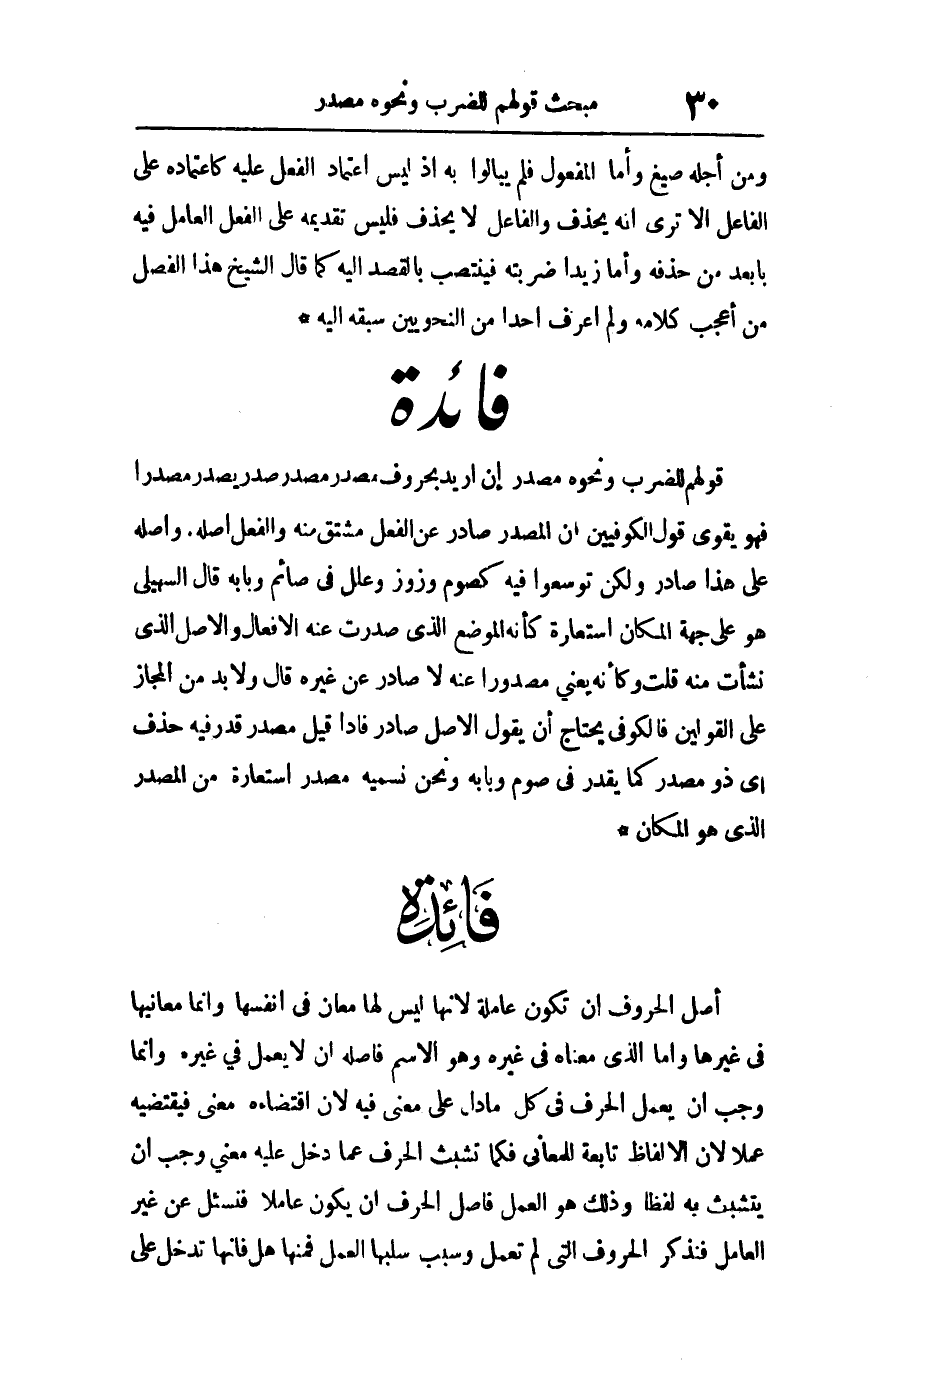 ٣٠ مبحث قولهم للضرب ونحوه مصدر
ومن أجله صيغ وأما المفعول فلم يبالوا به اذ ليس اعتماد الفعل عليه كاعتماده على
الفاعل الا ترى انه يحذف والفاعل لا يحذف فليس تقديمه على الفعل العامل فيه
بابعد من حذفه وأما زيدا ضربته فينتصب بالقصد اليه كما قال الشيخ هذا الفصل
من أعجب كلامه ولم اعرف احدا من النحويين سبقه اليه *
فائدة
قولهم للضرب ونحوه مصدر إن اريد بحروف مصدر مصدر صدر يصدر مصدرا
فهو يقوى قول الكوفيين ان المصدر صادر عن الفعل مشتق منه والفعل أصله . واصله
على هذا صادر ولكن توسعوا فيه كصوم وزوز وعلل فى صائم وبابه قال السهيلى
هو على جهة المكان استعارة كأنه الموضع الذى صدرت عنه الافعال والاصل الذى
نشأت منه قلت وكأنه يعني مصدورا عنه لا صادر عن غيره قال ولابد من المجاز
على القولين فالكوفى يحتاج أن يقول الاصل صادر فاذا قيل مصدر قدر فيه حذف
اى ذو مصدر كما يقدر فى صوم وبابه ونحن نسميه مصدر استعارة من المصدر
الذى هو المكان *
فَائِدَة
أصل الحروف ان تكون عاملة لانها ليس لها معان فى انفسها وانما معانيها
فى غيرها واما الذى معناه فى غيره وهو الاسم فاصله ان لا يعمل في غيره وانما
وجب ان يعمل الحرف فى كل مادل على معنى فيه لان اقتضاءه معنى فيقتضيه
عملا لان الالفاظ تابعة للمعانى فكما تشبث الحرف عما دخل عليه معني وجب ان
يتشبث به لفظا وذلك هو العمل فاصل الحرف ان يكون عاملا فنسئل عن غير
العامل فنذكر الحروف التى لم تعمل وسبب سلبها العمل فمنها هل فانها تدخل على